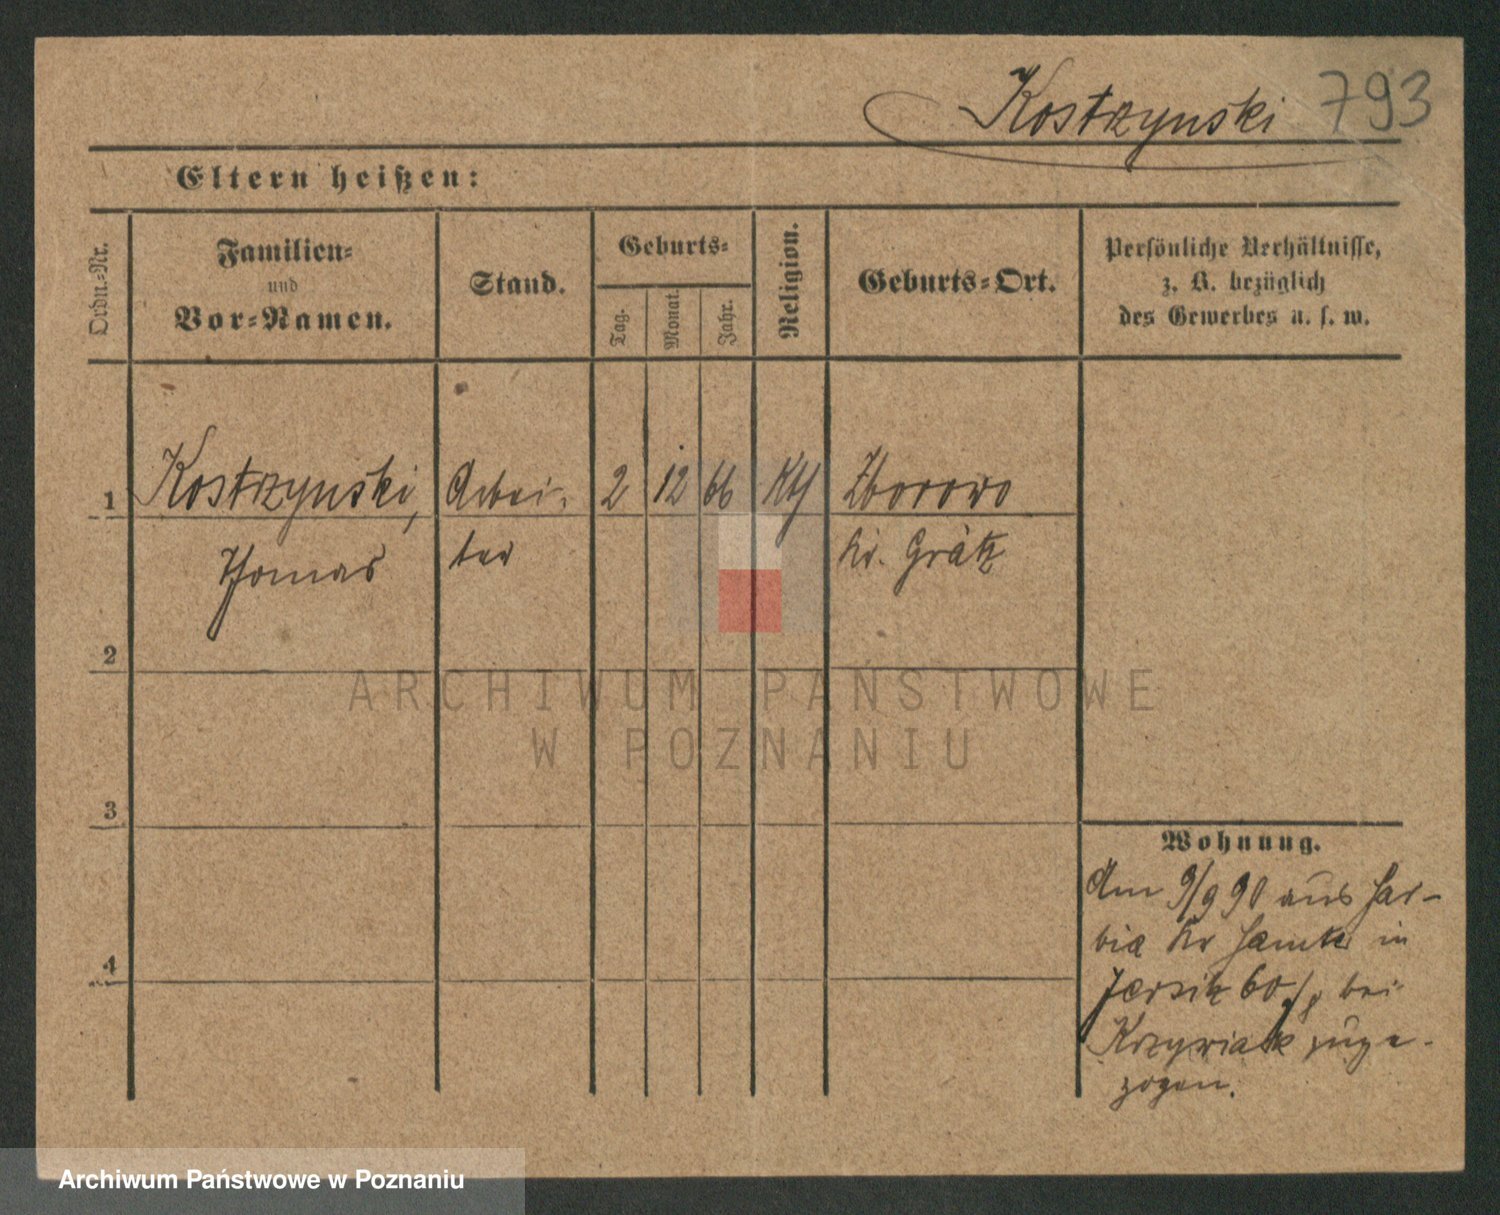 Kostrzynski 793
Eltern heißen:
Ordn.-Nr.
Familien-
und
Vor-Namen.
Stand.
Geburts-
Tag.
Monat.
Jahr.
Religion.
Geburts-Ort.
Persönliche Verhältnisse,
z. B. bezüglich
des Gewerbes u. s. w.
1 Kostrzynski, Arbei- 2 12 66 Kth Zborowo
Thomas ter Kr. Grätz
2
3
4
Wohnung.
Am 9/9 90 aus
Kr in
Jersitz 60 bei
Krzywiak zuge-
zogen.
ARCHIWUM PAŃSTWOWE
W POZNANIU
Archiwum Państwowe w Poznaniu